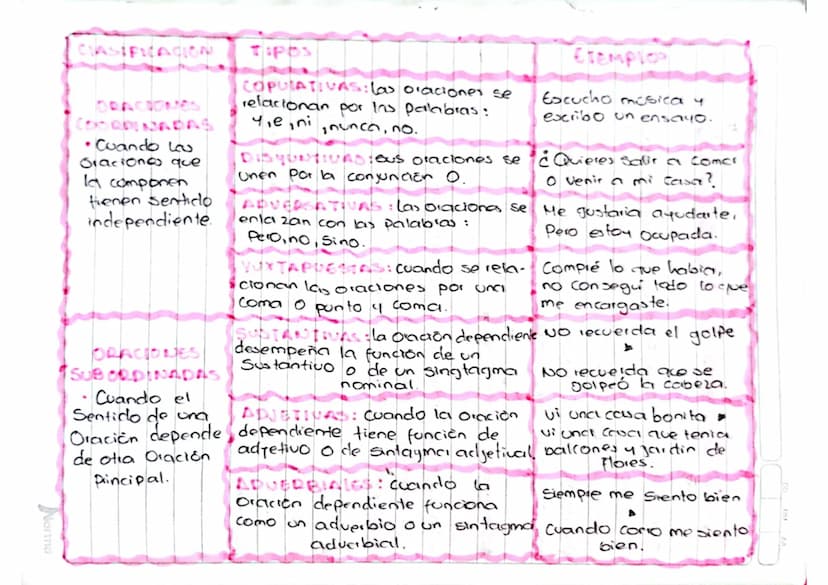 CLASIFICACIÓN
TIPOS
EJEMPLOS
ORACIONES
COORDINADAS
• Cuando las
oraciones que
la componen
tienen sentido
independiente.
COPULATIVAS: Las oraciones se
relacionan por las palabras:
y, e, ni, nunca, no.
Escucho música y
escribo un ensayo.
DISYUNTIVAS: sus oraciones se
unen por la conjunción O.
¿Quieres salir a comer
o venir a mi casa?
ADVERSATIVAS: Las oraciones se
enlazan con las palabras:
Pero, no, sino.
Me gustaria ayudarte,
Pero estoy ocupada.
YUXTAPUESTAS: cuando se rela-
cionan las oraciones por una
coma o punto y coma.
Compré lo que había,
no conseguí todo lo que
me encargaste.
ORACIONES
SUBORDINADAS
• Cuando el
Sentido de una
Oración depende
de otra Oración
Pincipal.
SUSTANTIVAS: la oración dependiente
desempeña la función de un
Sustantivo o de un singtagma
nominal.
NO recuerda el golpe
No recuerda que se
golpeó la cabeza.
ADJETIVAS: Cuando la oración
dependiente tiene función de
adjetivo o de sintagma adjetival
Vi una casa bonita
Vi una casa que tenia
balcones y jardin de
flores.
ADVERBIALES: Cuando la
Oración dependiente funciona
como un adverbio o un sintagma
adverbial.
Siempre me siento bien
Cuando corro me siento
bien.
Norma